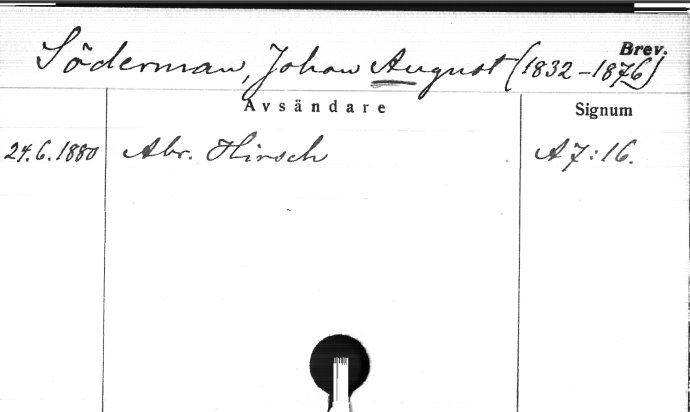 Brev.
Söderman, Johan August (1832-1876)
Avsändare Signum
24.6.1880 Abr. Hirsch A7:16.